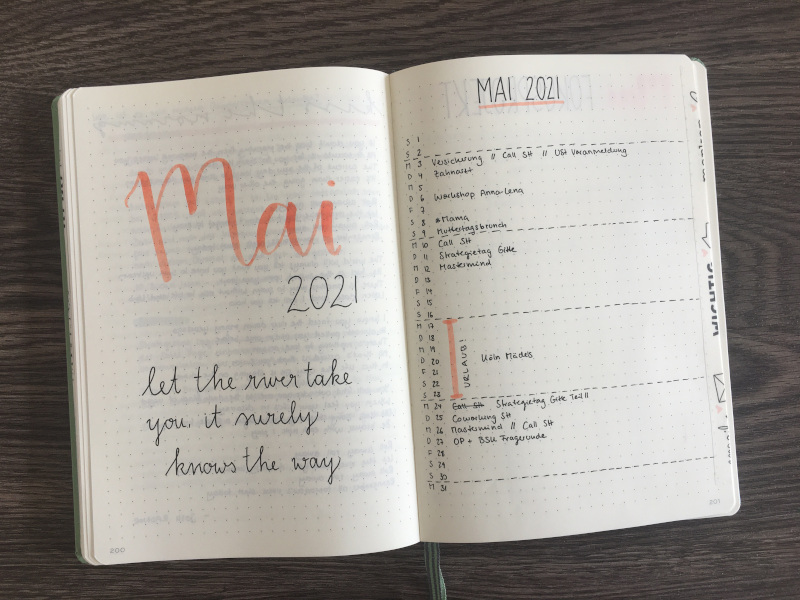 Mai
2021
let the river take
you, it surely
knows the way
200
MAI 2021
S 1
S 2
M 3 Versicherung // Call SH // USt Voranmeldung
D 4 Zahnarzt
M 5
D 6 Workshop Anna-Lena
F 7
S 8 *Mama
S 9 Muttertagsbrunch
M 10 Call SH
D 11 Strategietag Gitte
M 12 Mastermind
D 13
F 14
S 15
S 16
M 17
D 18
M 19
D 20 Köln Mädels
F 21
S 22
S 23
URLAUB!
M 24 Call SH Strategietag Gitte Teil II
D 25 Coworking SH
M 26 Mastermind // Call SH
D 27 OP + BSU Fragerunde
F 28
S 29
S 30
M 31
201
WICHTIG